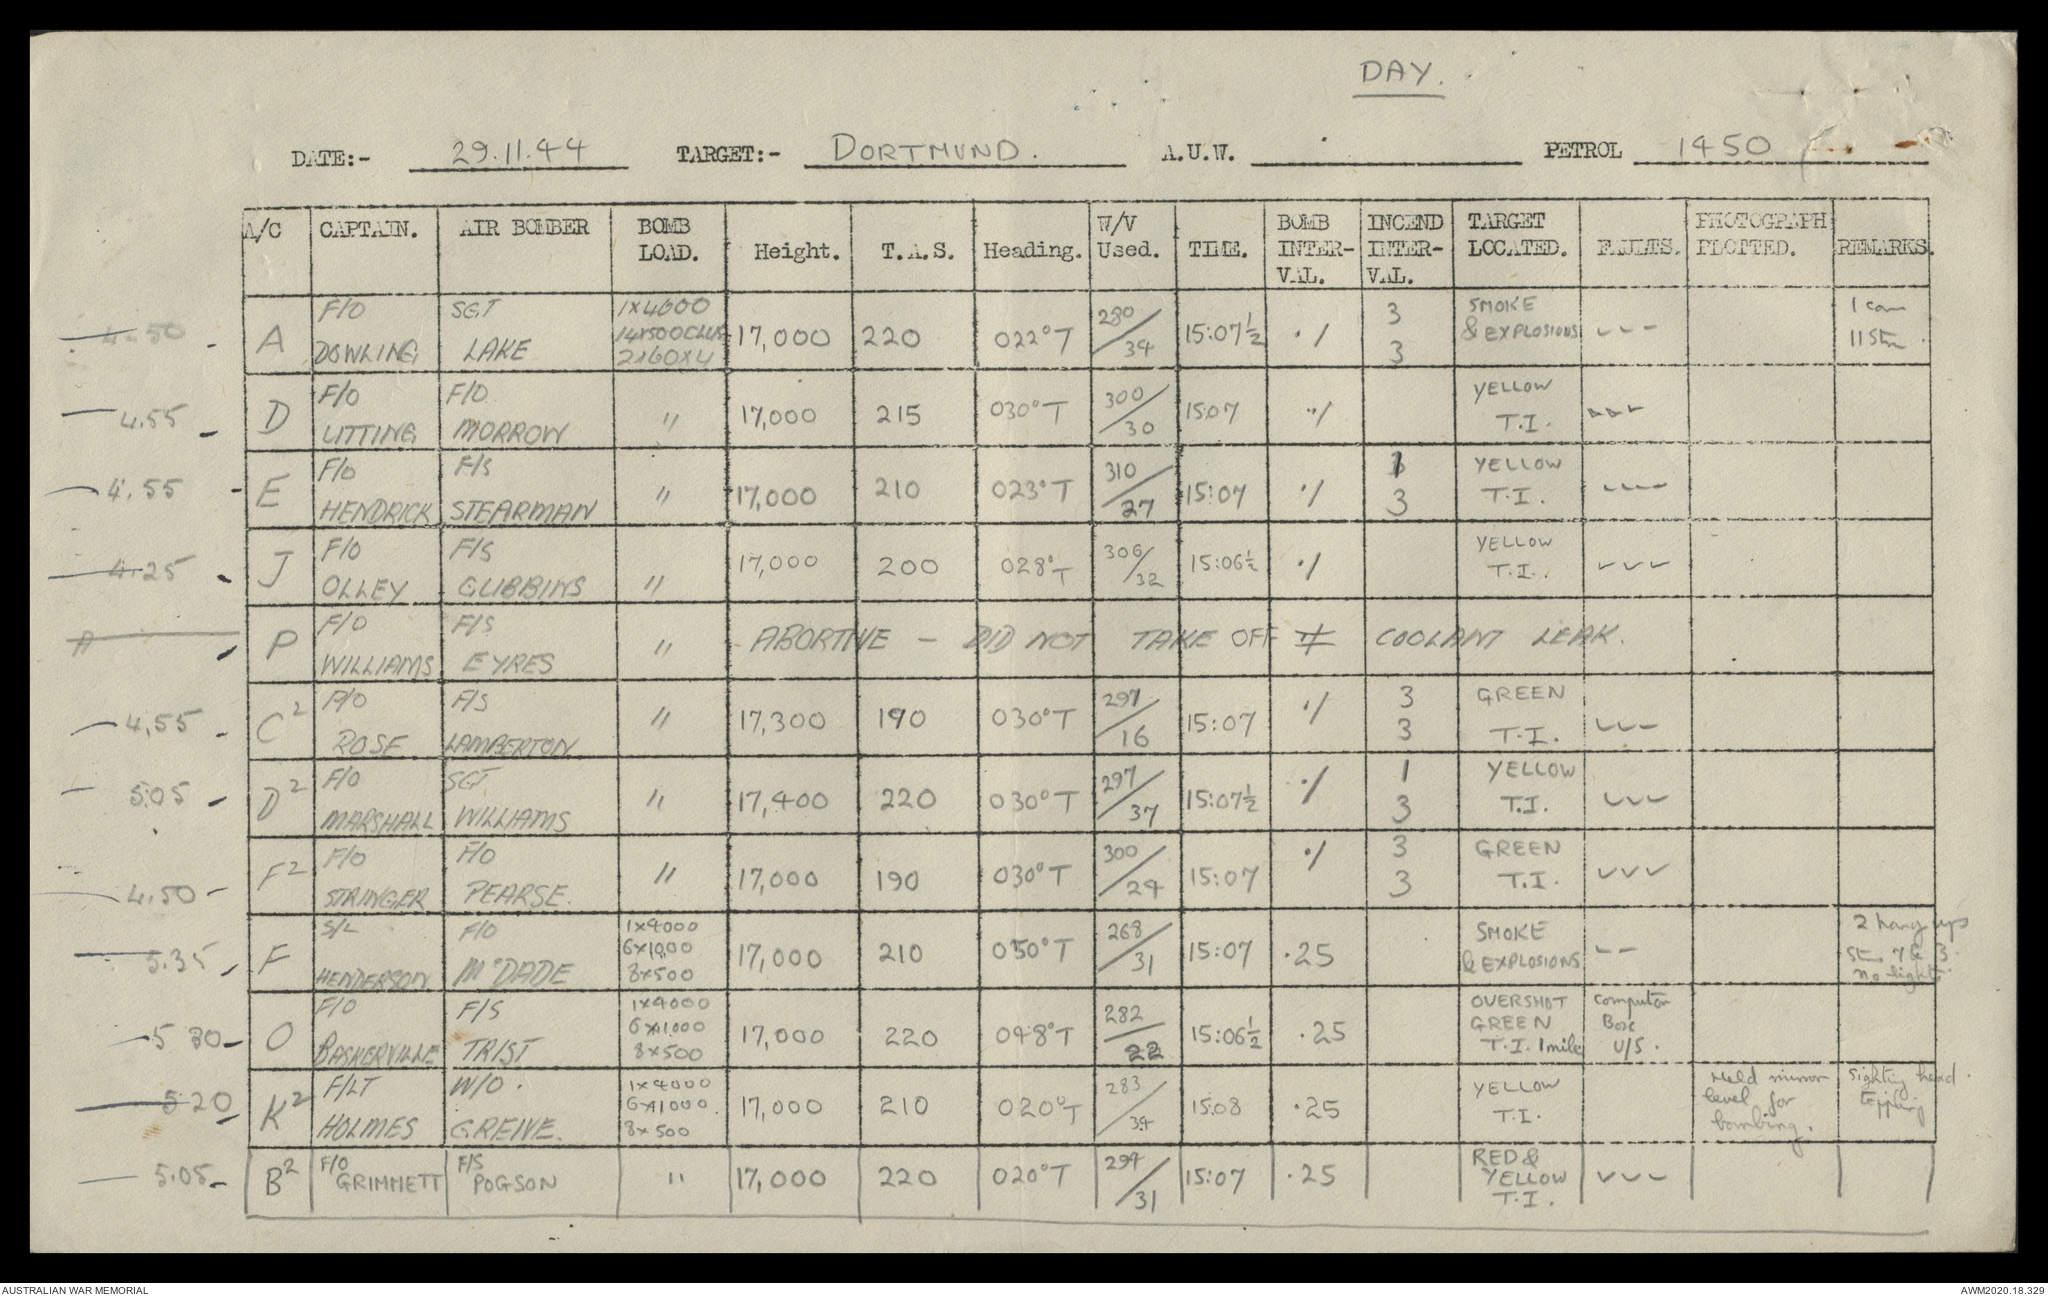 DAY.
DATE:- 29.11.44 TARGET:- DORTMUND. A.U.W. PETROL 1450
A/C CAPTAIN. AIR BOMBER BOMB LOAD. Height. T.A.S. Heading. W/V Used. TIME. BOMB INTER-VAL. INCEND INTER-VAL. TARGET LOCATED. FAULTS. PHOTOGRAPH PLOTTED. REMARKS.
4.50 A F/O DOWLING SGT LAKE 1x4000 14x500 CLUS 2x60x4 17,000 220 022°T 280/34 15:07½ ./ 3 3 SMOKE & EXPLOSIONS ✓✓✓ 1 can 11 Stn.
4.55 D F/O LITTING F/O MORROW " 17,000 215 030°T 300/30 15.07 ./ YELLOW T.I. ✓✓✓
4.55 E F/O HENDRICK F/S STEARMAN " 17,000 210 023°T 310/27 15:07 ./ 1 3 YELLOW T.I. ✓✓✓
4.25 J F/O OLLEY F/S GUBBINS " 17,000 200 028°T 306/32 15:06½ ./ YELLOW T.I. ✓✓✓
A P F/O WILLIAMS F/S EYRES " ABORTIVE - DID NOT TAKE OFF COOLANT LEAK.
4.55 C² F/O ROSE F/S LAMBERTON " 17,300 190 030°T 297/16 15:07 ./ 3 3 GREEN T.I. ✓✓✓
5.05 D² F/O MARSHALL SGT WILLIAMS " 17,400 220 030°T 297/37 15:07½ ./ 1 3 YELLOW T.I. ✓✓✓
4.50 F² F/O STRINGER F/O PEARSE. " 17,000 190 030°T 300/24 15:07 ./ 3 3 GREEN T.I. ✓✓✓
5.35 F S/L HENDERSON F/O McDADE 1x4000 6x1000 8x500 17,000 210 030°T 268/31 15:07 .25 SMOKE & EXPLOSIONS ✓✓ 2 hang ups Stns 7 & 3 no lights
5 30 O F/O BASKERVILLE F/S TRIST 1x4000 6x1,000 8x500 17,000 220 048°T 282/22 15:06½ .25 OVERSHOT GREEN T.I. 1 mile Computor Box U/S.
5 20 K² F/LT HOLMES W/O. GREIVE. 1x4000 6x1000. 8x500 17,000 210 020°T 283/34 15.08 .25 YELLOW T.I. Held mirror level for bombing. Sighting head toppling
5.05 B² F/O GRIMMETT F/S POGSON " 17,000 220 020°T 294/31 15:07 .25 RED & YELLOW T.I. ✓✓✓
AUSTRALIAN WAR MEMORIAL AWM2020.18.329